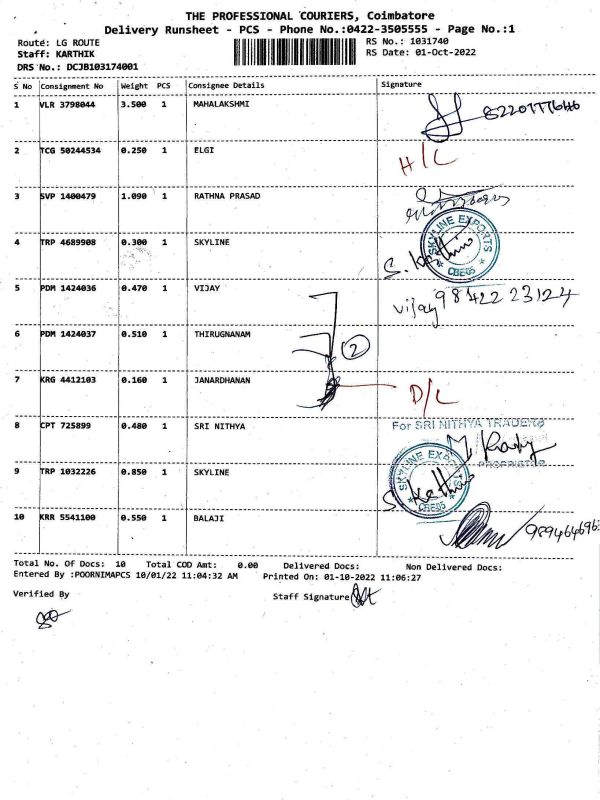 THE PROFESSIONAL COURIERS, Coimbatore
Delivery Runsheet - PCS - Phone No.:0422-3505555 - Page No.:1
Route: LG ROUTE RS No.: 1031740
Staff: KARTHIK RS Date: 01-Oct-2022
DRS No.: DCJB103174001
S No Consignment No Weight PCS Consignee Details Signature
1 VLR 3798044 3.500 1 MAHALAKSHMI
2 TCG 50244534 0.250 1 ELGI H/C
3 SVP 1400479 1.090 1 RATHNA PRASAD
4 TRP 4689908 0.300 1 SKYLINE SKYLINE EXPORTS CBE-05
5 PDM 1424036 0.470 1 VIJAY vijay 98422 23124
6 PDM 1424037 0.510 1 THIRUGNANAM 2
7 KRG 4412103 0.160 1 JANARDHANAN D/L
8 CPT 725899 0.480 1 SRI NITHYA For SRI NITHYA TRADERS
PROPRIETOR
9 TRP 1032226 0.850 1 SKYLINE SKYLINE EXPORTS CBE-05
10 KRR 5541100 0.550 1 BALAJI
Total No. Of Docs: 10 Total COD Amt: 0.00 Delivered Docs: Non Delivered Docs:
Entered By :POORNIMAPCS 10/01/22 11:04:32 AM Printed On: 01-10-2022 11:06:27
Verified By Staff Signature